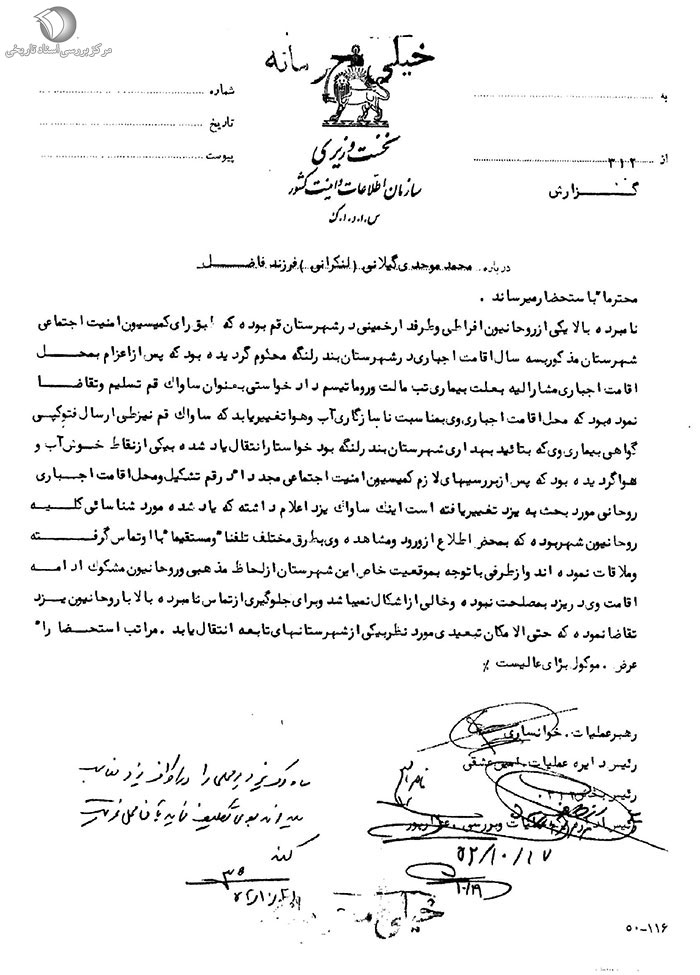 مرکز بررسی اسناد تاریخی
خیلی محرمانه
به
شماره
تاریخ
از ۳۱۲
پیوست
نخست وزیری
سازمان اطلاعات و امنیت کشور
س.ا.و.ا.ک
گزارش
درباره محمد موحدی گیلانی (لنکرانی) فرزند فاضل
محترما" باستحضار میرساند .
نامبرده بالا یکی از روحانیون افراطی و طرفدار خمینی در شهرستان قم بوده که طبق رای کمیسیون امنیت اجتماعی
شهرستان مذکور بسه سال اقامت اجباری در شهرستان بندر لنگه محکوم گردیده بود که پس از اعزام بمحل
اقامت اجباری مشارالیه بعلت بیماری تب مالت و روماتیسم دادخواستی بعنوان ساواک قم تسلیم و تقاضا
نموده بود که محل اقامت اجباری وی بمناسبت ناسازگاری آب و هوا تغییر یابد که ساواک قم نیز طی ارسال فتوکپی
گواهی بیماری وی که بتائید بهداری شهرستان بندر لنگه بود خواستار انتقال یاد شده بیکی از نقاط خوش آب و
هوا گردیده بود که پس از بررسیهای لازم کمیسیون امنیت اجتماعی مجددا" در قم تشکیل و محل اقامت اجباری
روحانی مورد بحث به یزد تغییر یافته است اینک ساواک یزد اعلام داشته که یاد شده مورد شناسائی کلیه
روحانیون شهر بوده که بمحض اطلاع از ورود و مشاهده وی بطرق مختلف تلفنا" و مستقیما" با او تماس گرفته
و ملاقات نموده اند و از طرفی با توجه بموقعیت خاص این شهرستان از لحاظ مذهبی و روحانیون مشکوک ادامه
اقامت وی در یزد بمصلحت نبوده و خالی از اشکال نمیباشد و برای جلوگیری از تماس نامبرده بالا با روحانیون یزد
تقاضا نموده که حتی الامکان تبعیدی مورد نظر بیکی از شهرستانهای تابعه انتقال یابد . مراتب استحضارا"
عرض . موکول برای عالیست ٪
رهبر عملیات . خوانساری
رئیس دایره عملیات . امین عشقی
رئیس بخش ۳۱۲ .
۵۲/۱۰/۱۷
۱۰/۱۹
۵۰-۱۱۶